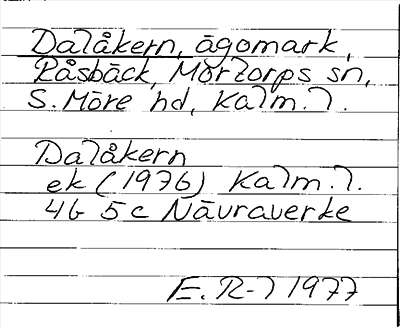 Dalåkern, ägomark,
Påsbäck, Mortorps sn,
S. Möre hd, Kalm. l.
Dalåkern
ek (1976) Kalm. l.
4G 5c Nävraverke
E. R-l 1977